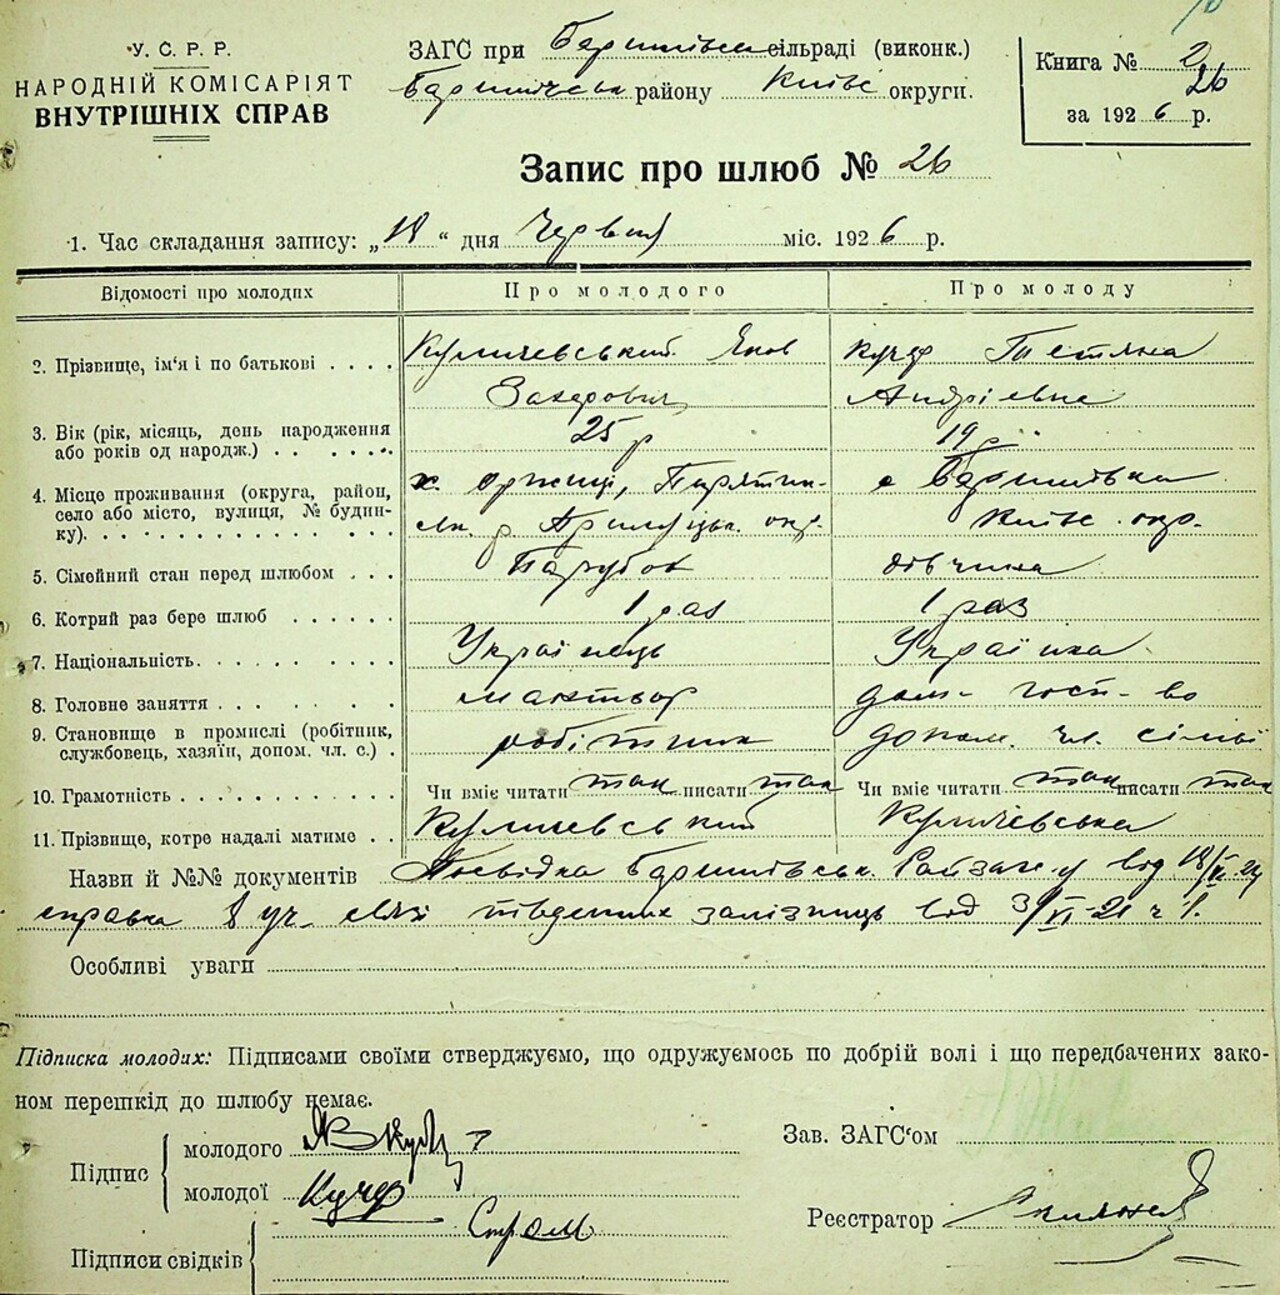 У. С. Р. Р.
НАРОДНІЙ КОМІСАРІЯТ
ВНУТРІШНІХ СПРАВ
ЗАГС при Баришівськ сільраді (виконк.)
Баришівськ району Київс округи.
Книга № 2
26
за 1926 р.
Запис про шлюб № 26
1. Час складання запису: „18“ дня Червня міс. 1926 р.
Відомості про молодих Про молодого Про молоду
2. Прізвище, ім'я і по батькові . . . . Яков Тетяна
Захарович Андріевна
3. Вік (рік, місяць, день народження 25 р 19 р
або років од народж.) . . . . . . .
4. Місце проживання (округа, район, х. Оржиці, Пирятин- с Баришівка
село або місто, вулиця, № будин- ськ. р Прилуцьк. окр. Київс. окр.
ку). . . . . . . . . . . . . . .
5. Сімейний стан перед шлюбом . . . Парубок дівчина
6. Котрий раз бере шлюб . . . . . . 1 раз 1 раз
7. Національність. . . . . . . . . . Українець Українка
8. Головне заняття . . . . . . . дом- госп-во
9. Становище в промислі (робітник, робітник допом. чл. сімьї
службовець, хазяїн, допом. чл. с.) .
10. Грамотність . . . . . . . . . . . Чи вміє читати так писати так Чи вміє читати так писати так
11. Прізвище, котре надалі матиме . .
Назви й №№ документів Посвідка Баришівськ. Райзагсу від 18/VI-26
справка 8 уч. південних залізниць від
Особливі уваги
Підписка молодих: Підписами своїми стверджуємо, що одружуємось по добрій волі і що передбачених зако-
ном перешкід до шлюбу немає.
Підпис
молодого
молодої Кучер
Зав. ЗАГС'ом
Реєстратор
Підписи свідків